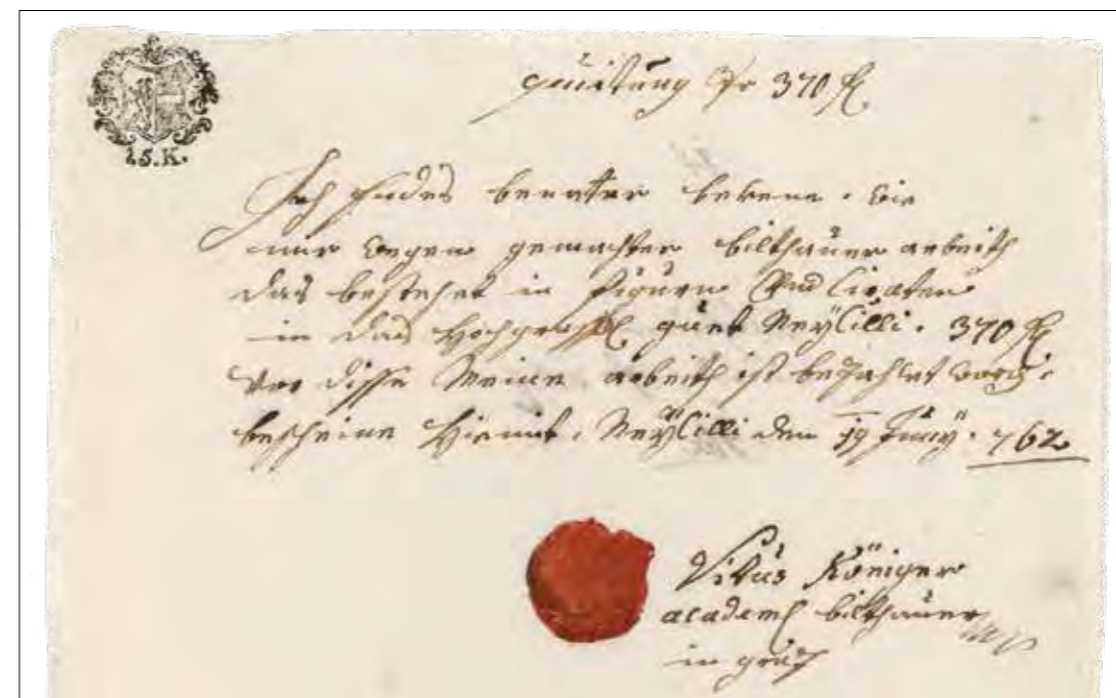 15.K.
quittung Pr 370 fl
Ich Endes benanter bekene, die
mir wegen gemachter bilthauer arbeith
das bestehet in figuren Und Ciraten
in das Hochgräffl guet Neÿ Cilli. 370 fl
Vor disse Meine arbeith ist bezahlet word.
bescheine Hiemit, Neÿ Cilli den 19 Junÿ. 762
Vitus Königer
academl bilthauer
in gräz